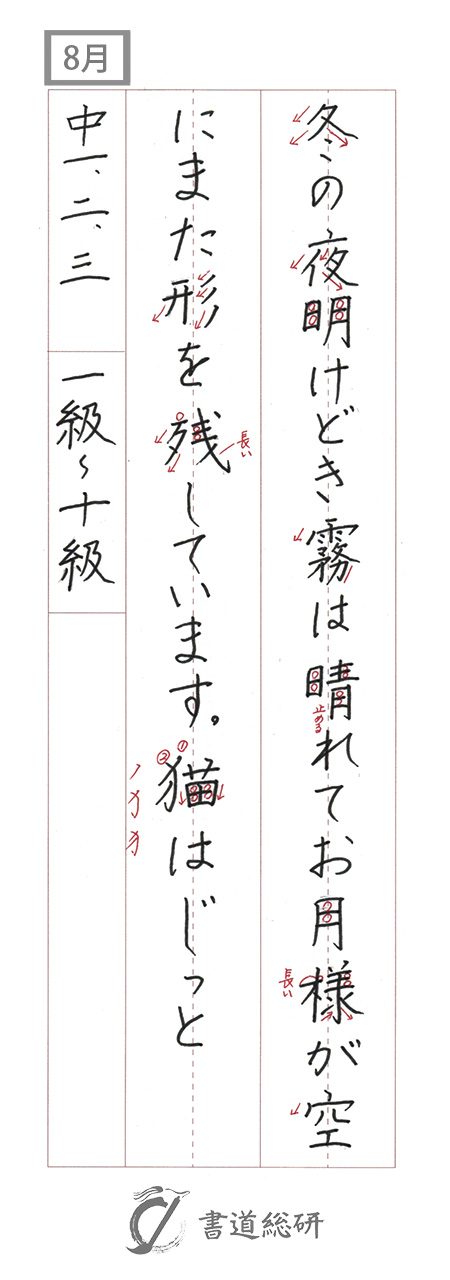 8月
冬の夜明けどき霧は晴れてお月様が空
にまた形を残しています。猫はじっと
中一、二、三
一級〜十級
長い
止める
長い
① ②
書道総研